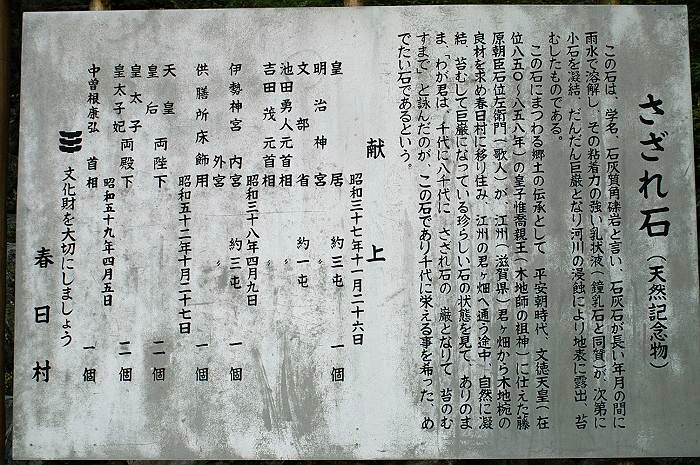 さざれ石（天然記念物）
この石は、学名、石灰質角礫岩と言い、石灰石が長い年月の間に
雨水で溶解し、その粘着力の強い乳状液（鐘乳石と同質）が、次第に
小石を凝結、だんだん巨巌となり河川の浸蝕により地表に露出、苔
むしたものである。
この石にまつわる郷土の伝承として、平安朝時代、文徳天皇（在
位八五〇～八五八年）の皇子惟喬親王（木地師の祖神）に仕えた藤
原朝臣石位左衛門（歌人）が、江州（滋賀県）君ヶ畑から木地椀の
良材を求め春日村に移り住み、江州の君ヶ畑へ通う途中、自然に凝
結、苔むして巨巌になっている珍らしい石の状態を見て、ありのま
ま、「わが君は、千代に八千代に、さざれ石の、巌となりて、苔のむ
すまで」と詠んだのが、この石であり千代に栄える事を希った、め
でたい石であるという。
献上
昭和三十七年十一月二十六日
皇居 約三屯 一個
明治神宮 〃
文部省 約一屯
池田勇人元首相 〃
吉田茂元首相 〃
昭和三十八年四月九日
伊勢神宮 内宮 約三屯 一個
外宮 〃
供膳所床飾用 一個
昭和五十二年十月二十七日
天皇
皇后 両陛下 二個
皇太子
皇太子妃 両殿下 二個
昭和五十九年四月五日
中曽根康弘 首相 一個
文化財を大切にしましょう
春日村